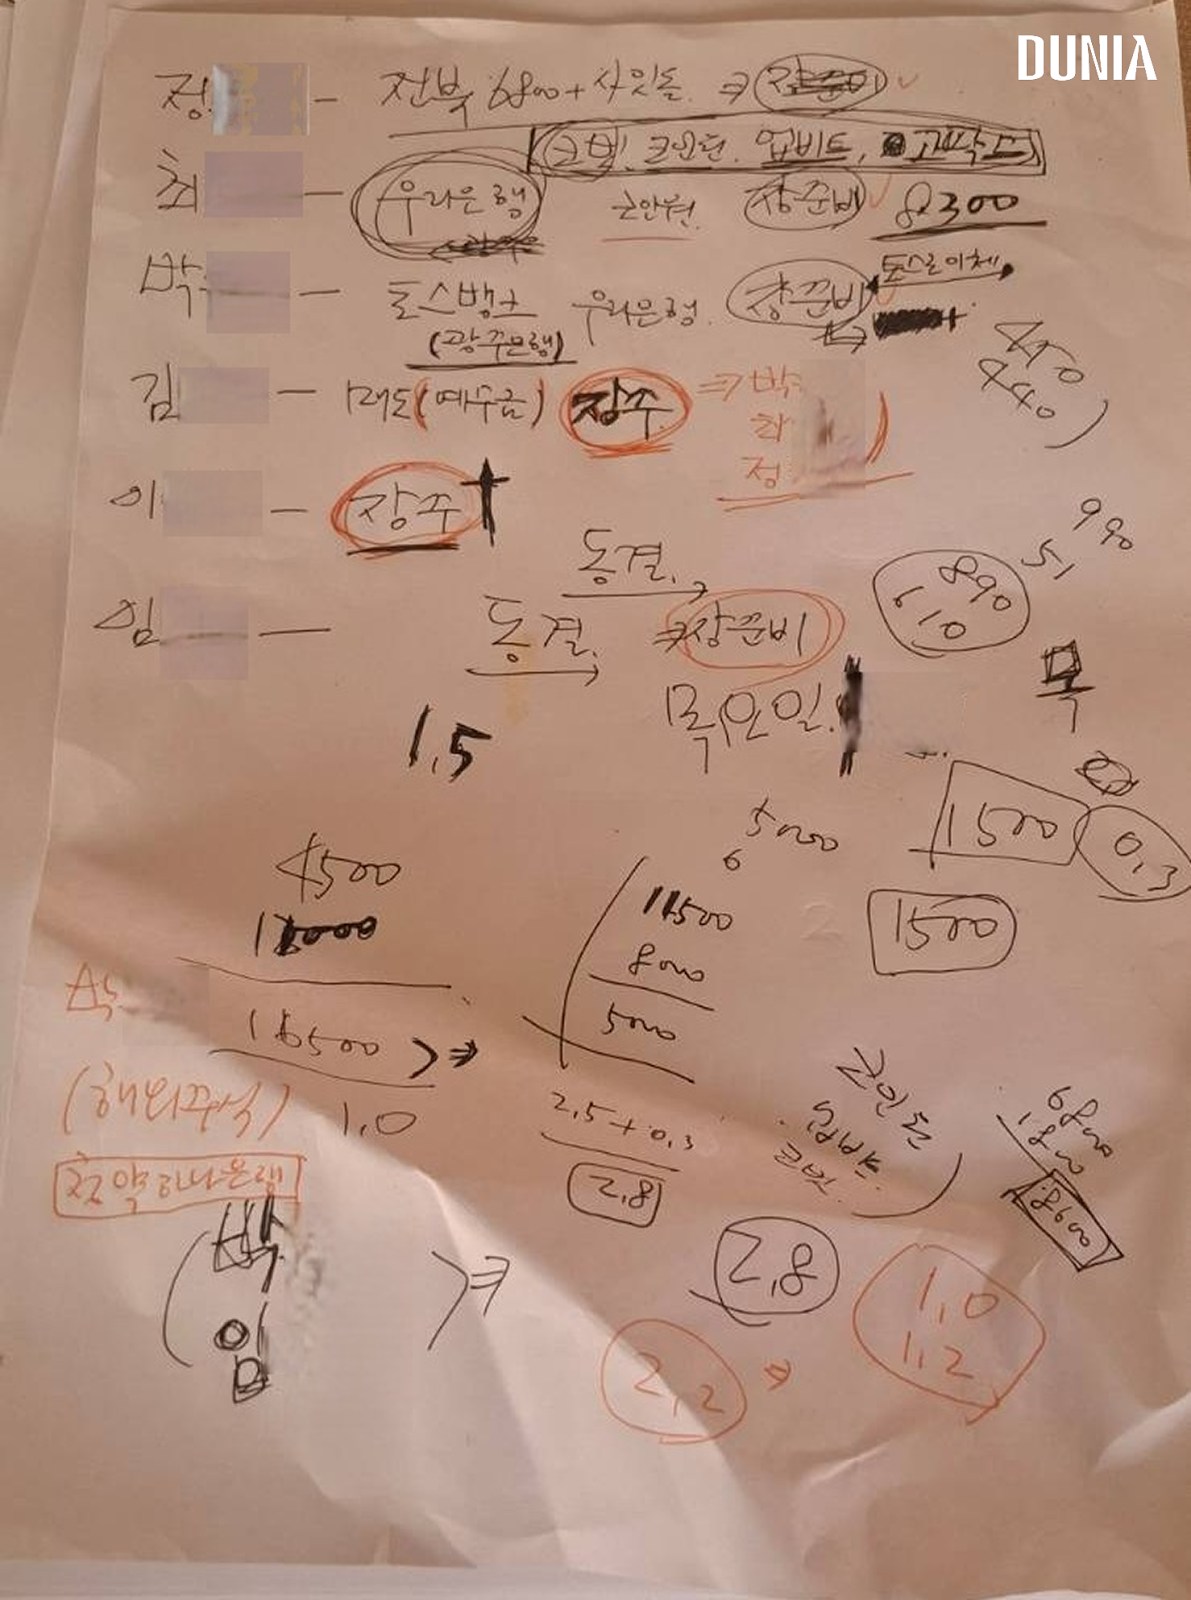 DUNIA
정 — 전북 6800+사잇돌 ⇒
코빗, 코인원, 업비트, 고팍스
최 — 우리은행 코인원 장준비 8300
박 — 토스뱅크 우리은행 장준비 토스로이체
(광주은행)
450
440)
김 — 매도(예수금) 장주 ⇒ 박
최
정
이 — 장주
동결
990
51
890
610
임 — 동결 ⇒ 장준비
목요일
목
1.5
1500
0.3
5000
6
4500
11500
1500
8000
5000
16500 ⇒
(해외주식) 1.0
2.5+0.3
2.8
코인원
코빗
6800
1800
8600
청약하나은행
박
임
⇒
2.8
1.0
1.2
2.2 ⇒